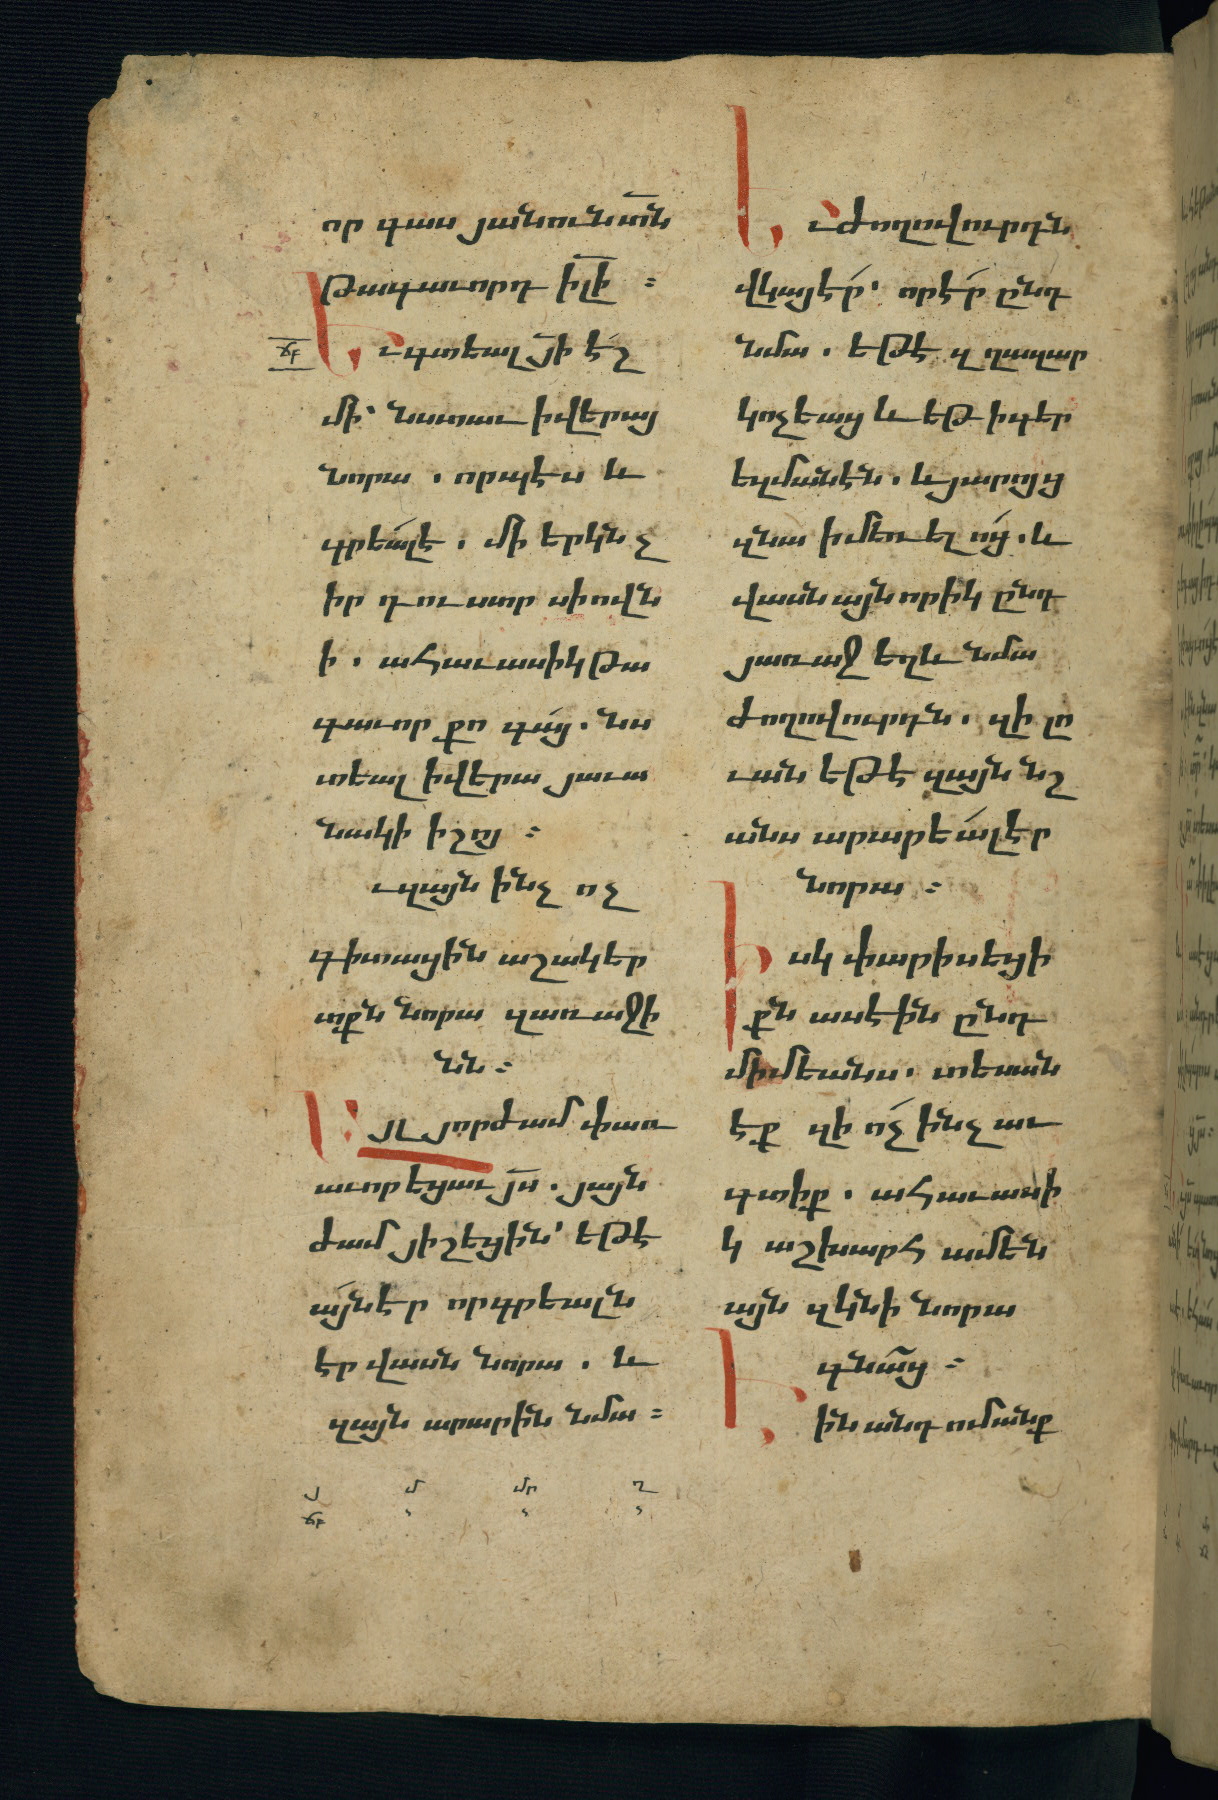 որ գաս յանուն տն
թագաւորդ իլի :
ճբ
Եւ գտեալ յի էշ
մի՝ նստաւ իվերայ
նորա . որպէս և
գրեալէ . մի երկնչ
իր դուստր սիովն
ի . ահաւասիկ թա
գաւոր քո գայ . նս
տեալ իվերա յաւա
նակի իշոյ :
ւզայն ինչ ոչ
գիտացին աշակեր
տքն նորա զառաջի
նն :
Այլ յորժամ փառ
աւորեցաւ յս . յայն
ժամ յիշեցին՝ եթէ
այնէր որգրեալն
էր վասն նորա . և
զայն արարին նմա :
Եւ ժողովուրդն
վկայէր՝ որէր ընդ
նմա . եթէ զղազար
կոչեաց և եթ իգեր
եզմանէն . և յարոյց
զնա իմեռելոց . և
վասն այնորիկ ընդ
յառաջ եղև նմա
ժողովուրդն . զի լո
ւան եթէ զայն նշ
անս արարեալէր
նորա :
Իսկ փարիսեցի
քն ասէին ընդ
միմեանս . տեսան
էք զի ոչ ինչ աւ
գտիք . ահաւասի
կ աշխարհ ամեն
այն զկնի նորա
գնաց :
Էին անդ ոմանք
յ մ մր ղ
ճբ